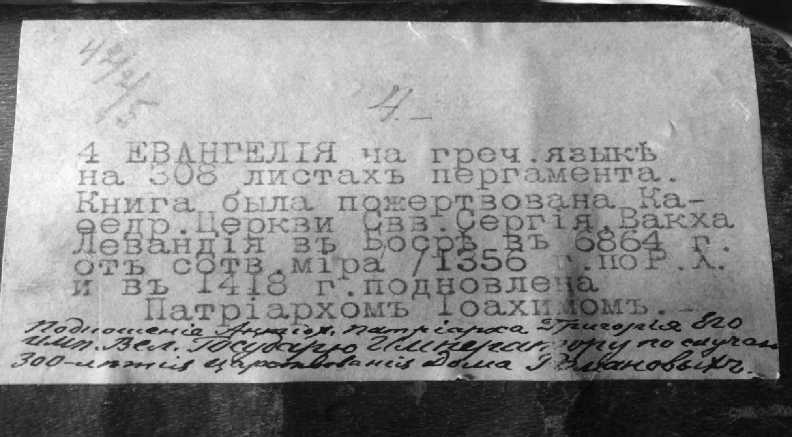 4.—
4 ЕВАНГЕЛІЯ на греч.языкѣ
на 308 листахъ пергамента.
Книга была пожертвована Ка-
ѳедр.Церкви Свв.Сергія,Вакха
Левандія въ Босрѣ въ 6864 г.
отъ сотв.міра /1356 г.по Р.Х.
и въ 1418 г.подновлена
Патріархомъ Іоахимомъ.—
Подношеніе Антіох. патріарха Григорія Его
Имп. Вел. Государю Императору по случаю
300-лѣтія царствованія дома Романовыхъ.